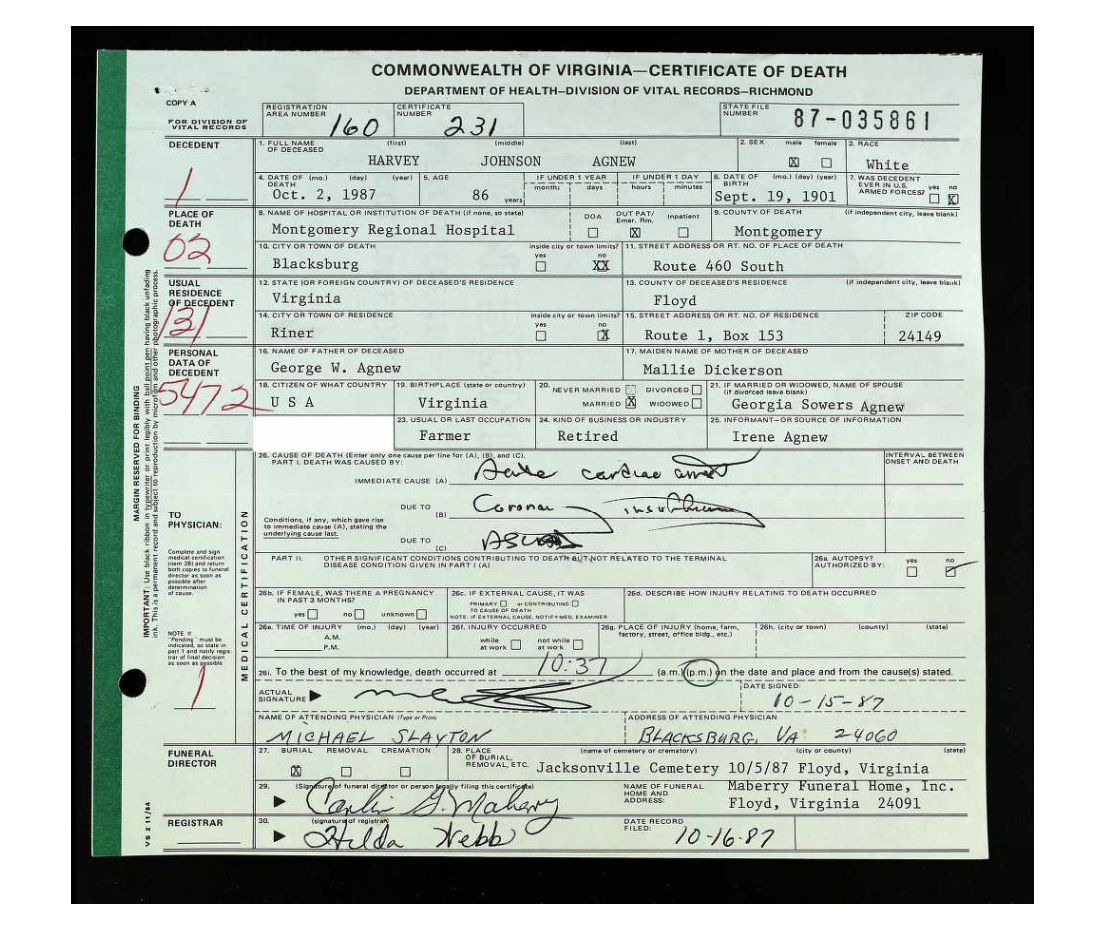 COMMONWEALTH OF VIRGINIA—CERTIFICATE OF DEATH
DEPARTMENT OF HEALTH—DIVISION OF VITAL RECORDS—RICHMOND
COPY A
FOR DIVISION OF VITAL RECORDS
REGISTRATION AREA NUMBER 160
CERTIFICATE NUMBER 231
STATE FILE NUMBER 87-035861
DECEDENT
1
1. FULL NAME OF DECEASED (first) (middle) (last)
HARVEY JOHNSON AGNEW
2. SEX male female
X
3. RACE
White
4. DATE OF DEATH (mo.) (day) (year)
Oct. 2, 1987
5. AGE
86 years
IF UNDER 1 YEAR months days
IF UNDER 1 DAY hours minutes
6. DATE OF BIRTH (mo.) (day) (year)
Sept. 19, 1901
7. WAS DECEDENT EVER IN U.S. ARMED FORCES? yes no
X
PLACE OF DEATH
02
8. NAME OF HOSPITAL OR INSTITUTION OF DEATH (if none, so state)
Montgomery Regional Hospital
DOA OUT PAT/ Emer. Rm. Inpatient
X
9. COUNTY OF DEATH (if independent city, leave blank)
Montgomery
10. CITY OR TOWN OF DEATH inside city or town limits? yes no
Blacksburg XX
11. STREET ADDRESS OR RT. NO. OF PLACE OF DEATH
Route 460 South
USUAL RESIDENCE OF DECEDENT
131
12. STATE (OR FOREIGN COUNTRY) OF DECEASED'S RESIDENCE
Virginia
13. COUNTY OF DECEASED'S RESIDENCE (if independent city, leave blank)
Floyd
14. CITY OR TOWN OF RESIDENCE inside city or town limits? yes no
Riner X
15. STREET ADDRESS OR RT. NO. OF RESIDENCE
Route 1, Box 153
ZIP CODE
24149
PERSONAL DATA OF DECEDENT
5472
16. NAME OF FATHER OF DECEASED
George W. Agnew
17. MAIDEN NAME OF MOTHER OF DECEASED
Mallie Dickerson
18. CITIZEN OF WHAT COUNTRY
U S A
19. BIRTHPLACE (state or country)
Virginia
20. NEVER MARRIED DIVORCED
MARRIED X WIDOWED
21. IF MARRIED OR WIDOWED, NAME OF SPOUSE (if divorced leave blank)
Georgia Sowers Agnew
23. USUAL OR LAST OCCUPATION
Farmer
24. KIND OF BUSINESS OR INDUSTRY
Retired
25. INFORMANT—OR SOURCE OF INFORMATION
Irene Agnew
MARGIN RESERVED FOR BINDING
IMPORTANT: Use black ribbon in typewriter or print legibly with ball point pen having black unfading
ink. This is a permanent record and subject to reproduction by microfilm and other photographic process.
TO PHYSICIAN:
Complete and sign
medical certification
(item 26) and return
both copies to funeral
director as soon as
possible after
determination
of cause.
NOTE If
"Pending" must be
indicated, so state in
part 1 and notify regis-
trar of final decision
as soon as possible
1
MEDICAL CERTIFICATION
26. CAUSE OF DEATH (Enter only one cause per line for (A), (B), and (C).
PART I. DEATH WAS CAUSED BY:
INTERVAL BETWEEN ONSET AND DEATH
IMMEDIATE CAUSE (A) cardiac arrest
DUE TO (B) Coronary
Conditions, if any, which gave rise
to immediate cause (A), stating the
underlying cause last.
DUE TO (C)
PART II. OTHER SIGNIFICANT CONDITIONS CONTRIBUTING TO DEATH BUT NOT RELATED TO THE TERMINAL
DISEASE CONDITION GIVEN IN PART I (A)
26a. AUTOPSY? AUTHORIZED BY: yes no
26b. IF FEMALE, WAS THERE A PREGNANCY IN PAST 3 MONTHS?
yes no unknown
26c. IF EXTERNAL CAUSE, IT WAS
PRIMARY or CONTRIBUTING
TO CAUSE OF DEATH
NOTE: IF EXTERNAL CAUSE, NOTIFY MED. EXAMINER
26d. DESCRIBE HOW INJURY RELATING TO DEATH OCCURRED
26e. TIME OF INJURY (mo.) (day) (year)
A.M.
P.M.
26f. INJURY OCCURRED
while at work not while at work
26g. PLACE OF INJURY (home, farm, factory, street, office bldg., etc.)
26h. (city or town) (county) (state)
26i. To the best of my knowledge, death occurred at 10:37 (a.m.) (p.m.) on the date and place and from the cause(s) stated.
ACTUAL SIGNATURE
DATE SIGNED:
10-15-87
NAME OF ATTENDING PHYSICIAN (Type or Print)
MICHAEL SLAYTON
ADDRESS OF ATTENDING PHYSICIAN
BLACKSBURG, VA 24060
FUNERAL DIRECTOR
27. BURIAL REMOVAL CREMATION
X
28. PLACE OF BURIAL, REMOVAL, ETC. (name of cemetery or crematory) (city or county) (state)
Jacksonville Cemetery 10/5/87 Floyd, Virginia
29. (Signature of funeral director or person legally filing this certificate)
G. Maberry
NAME OF FUNERAL HOME AND ADDRESS:
Maberry Funeral Home, Inc.
Floyd, Virginia 24091
REGISTRAR
30. (signature of registrar)
Hilda Webb
DATE RECORD FILED:
10-16-87
VS 2 11/84